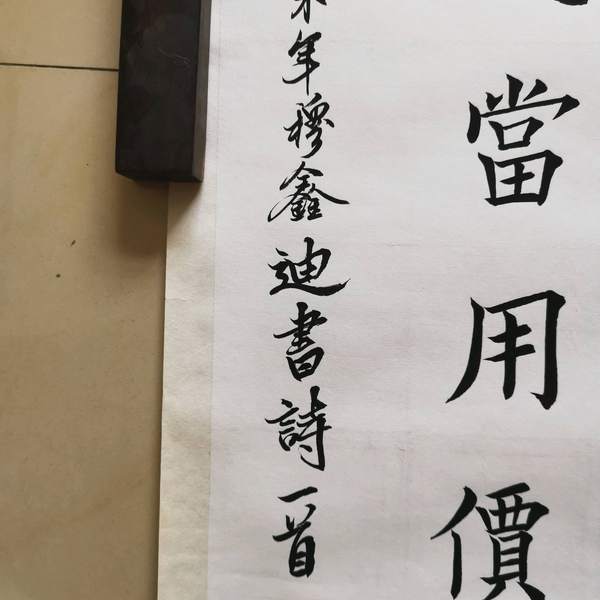 當用價
年穆鑫迪書詩一首